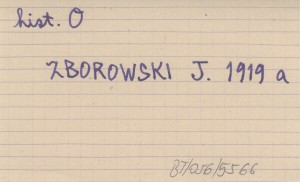 hist. O
ZBOROWSKI J. 1919 a
BT/056/5566